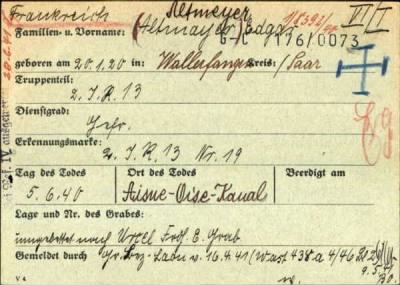 Frankreich
Altmeyer
Familien- u. Vorname: (Altmayer) Edgar
G-C 176/0073
VI/I
geboren am 20.1.20 in Wallerfangen Kreis: /Saar
Truppenteil:
2. J.R. 13
Dienstgrad:
Gefr.
Erkennungsmarke:
2. J.R. 13 Nr. 19
Tag des Todes Ort des Todes Beerdigt am
5.6.40 Aisne-Oise-Kanal
Lage und Nr. des Grabes:
umgebettet nach Urcel Frdf. E. Grab
Gemeldet durch Gr. Laon v. 16.4.41 (Wast 438 a 4/46
9.5.41
V 4